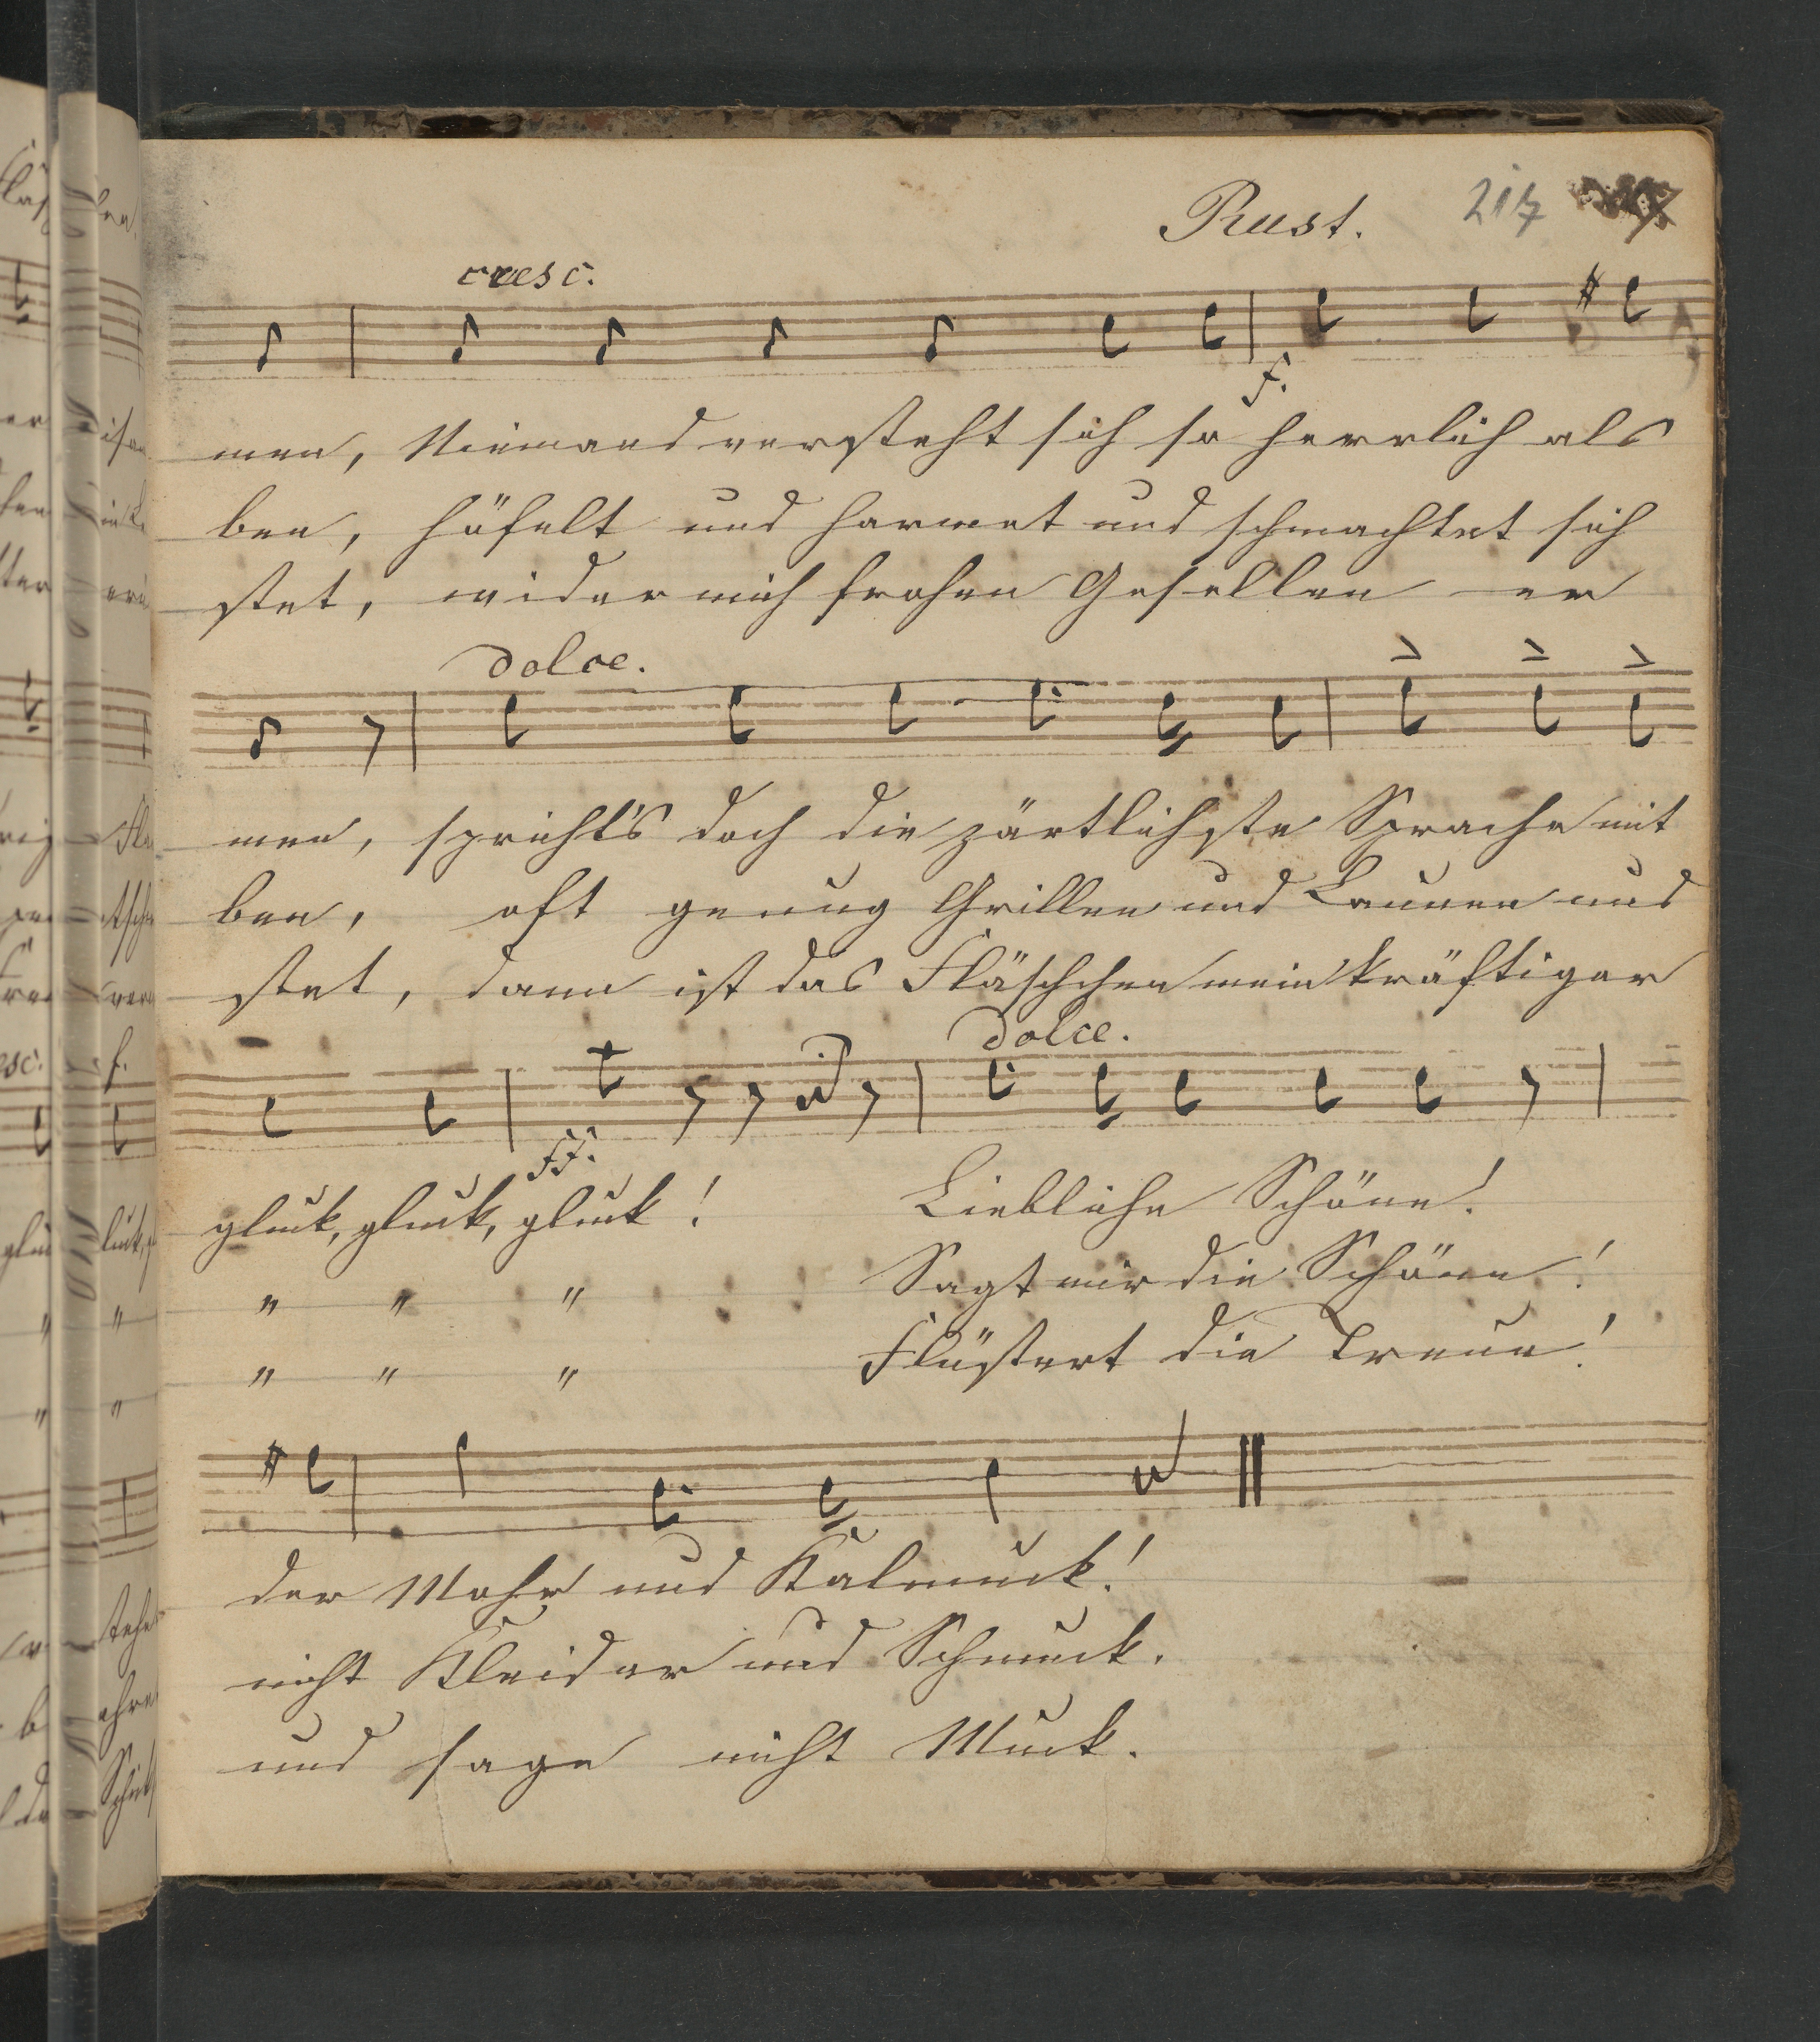 Rust. 217
cresc.
f.
men, Niemand versteht sich so herrlich als
ben, höfelt und harmet und schmachtet sich
stet, wider mich frohen Gesellen er
dolce.
men, spricht's doch die zärtlichste Sprache mit
ben, oft genug Grillen und Launen und
stet, dann ist das Fläschchen mein kräftiger
dolce.
ff.
gluck, gluck, gluck! Liebliche Schöne!
" " " Sagt mir die Schöne!
" " " Flüstert die Treue!
der Mohr und Kalmuck!
nicht Kleider und Schmuck.
und sage nicht Muck.